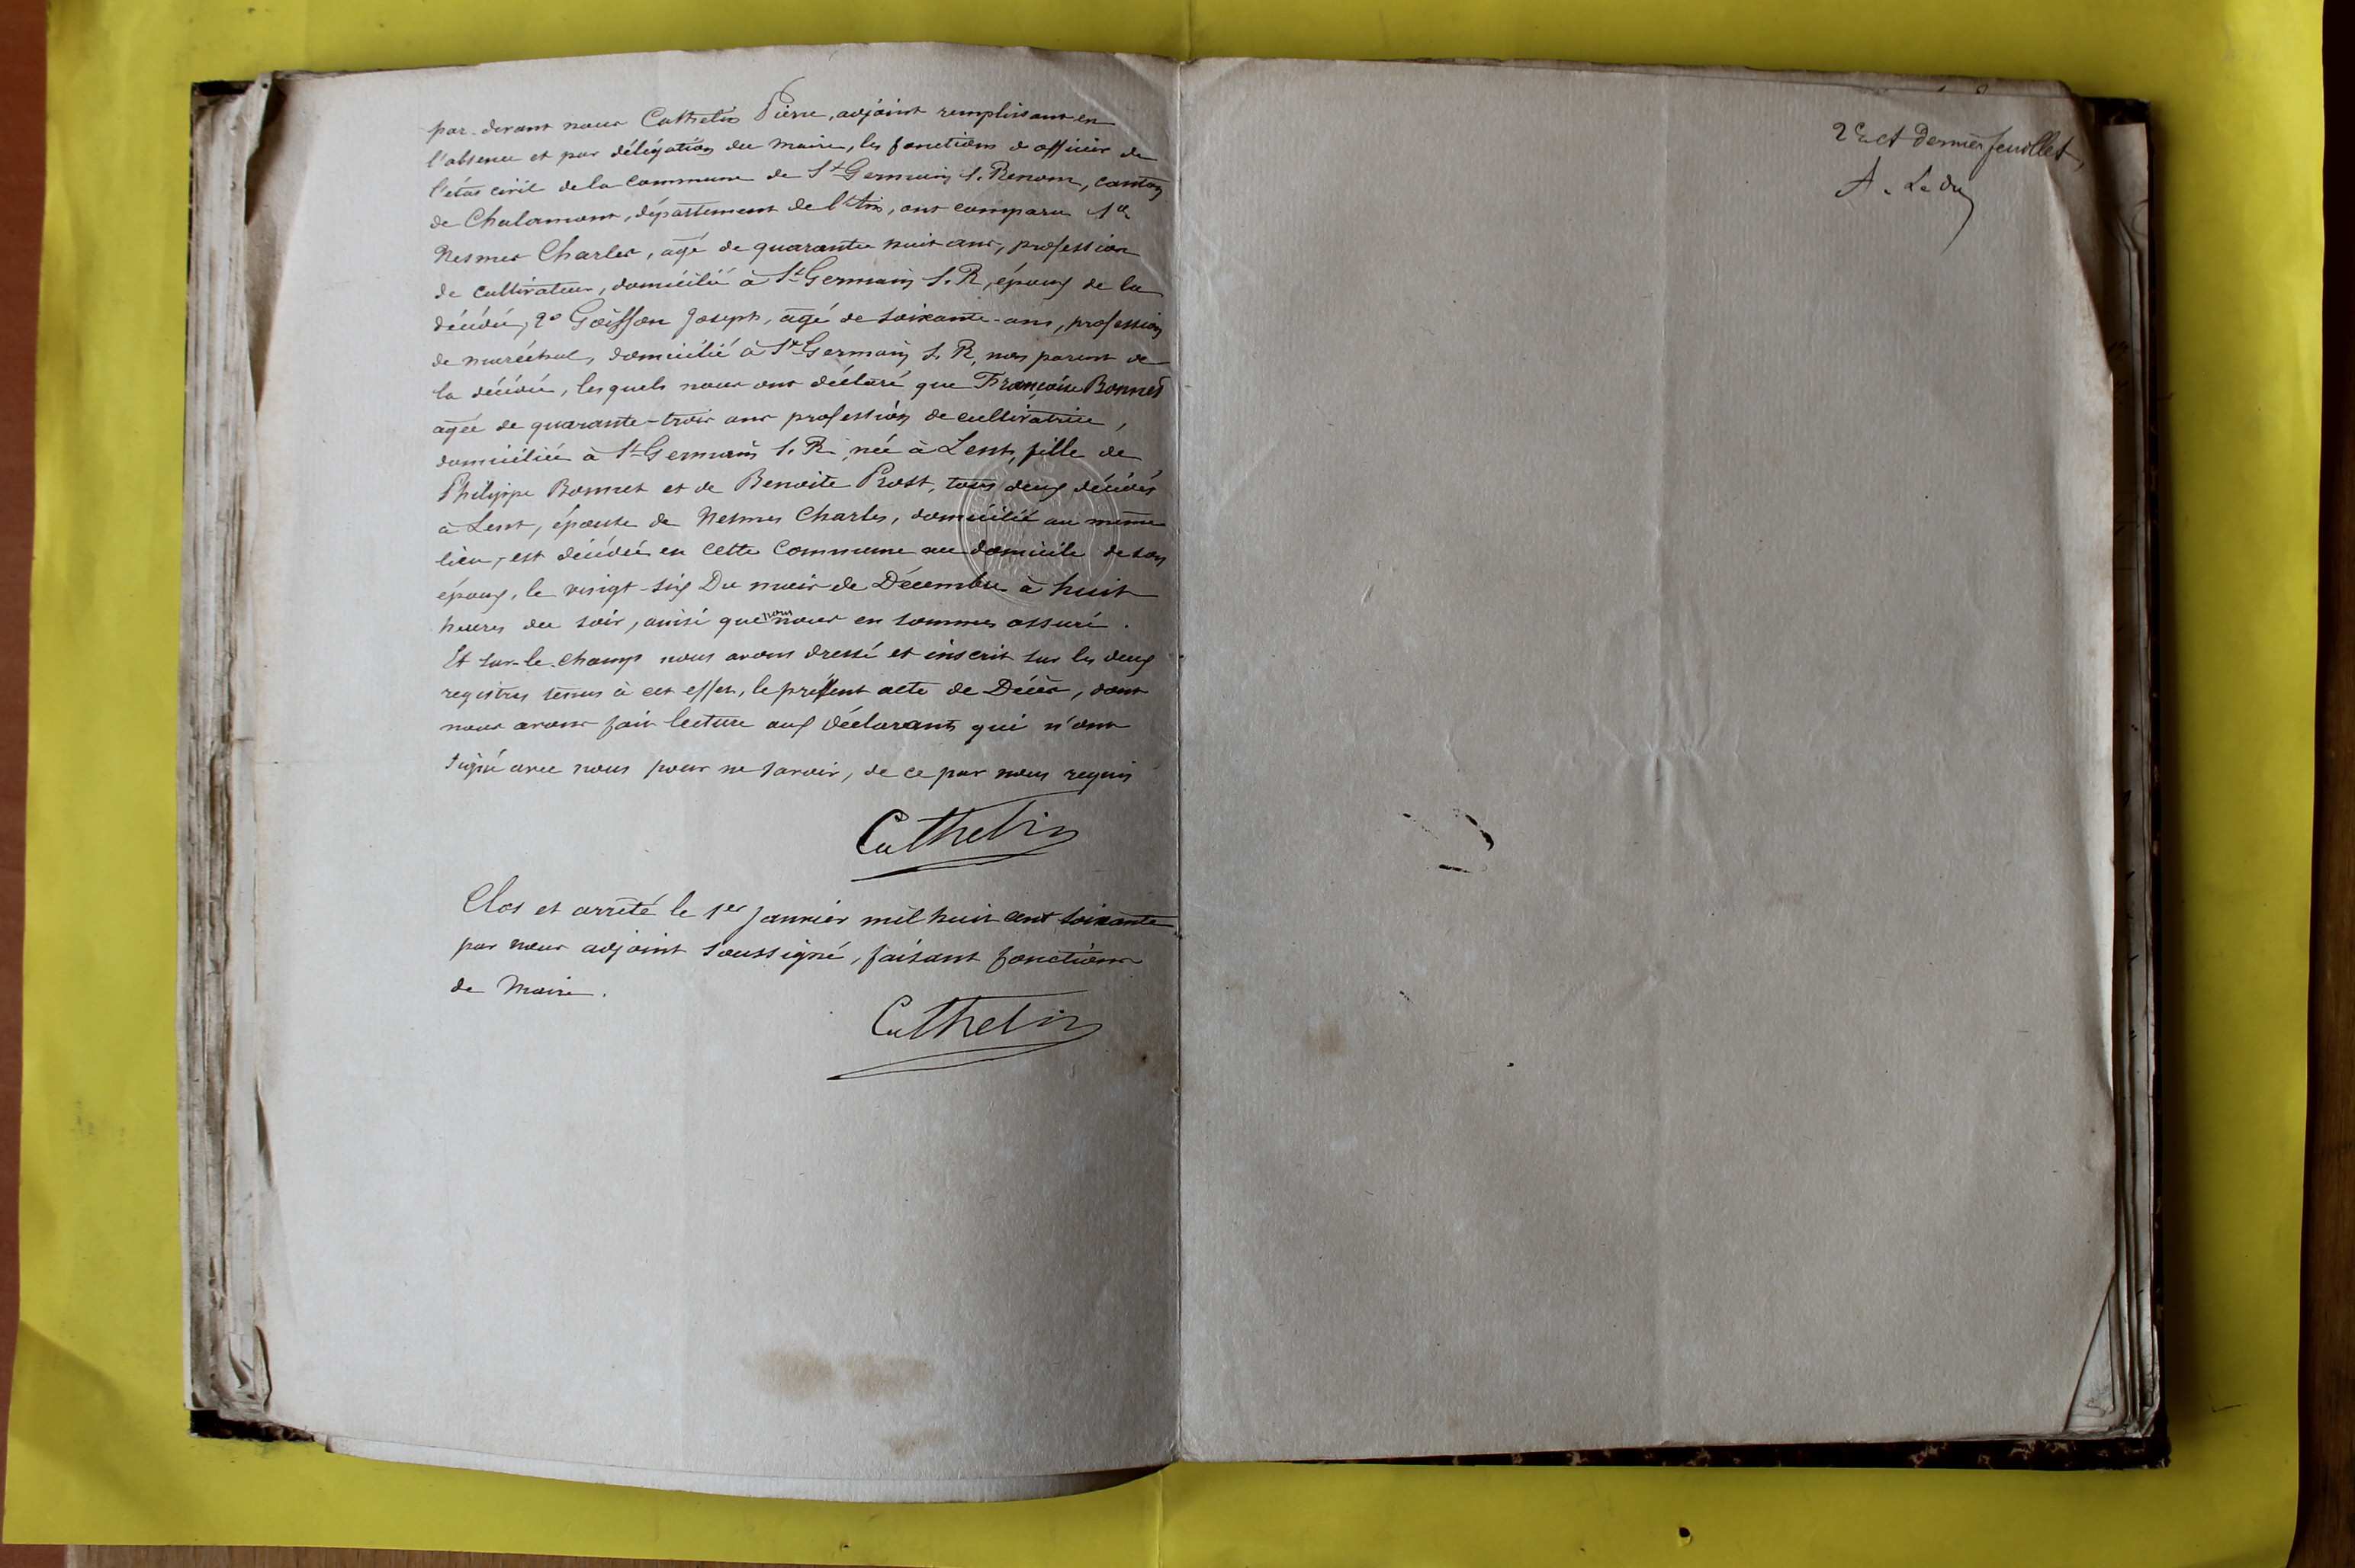 par-devant nous Cathelin Pierre, adjoint remplissant en
l'absence et par délégation du maire, les fonctions d'officier de
l'état civil de la commune de St Germain s. Renom, canton
de Chalamont, département de l'Ain, ont comparu 1o
Nesmes Charles, agé de quarante huit ans, profession
de cultivateur, domicilié à St Germain s. R, époux de la
décédée, 2o Goiffon Joseph, agé de soixante-ans, profession
de maréchal, domicilié à St Germain s. R, non parent de
la décédée, lesquels nous ont déclaré que Françoise Bonnet
agée de quarante-trois ans profession de cultivatrice,
domiciliée à St Germain s. R. née à Lent, fille de
Philippe Bonnet et de Benoite Prost, tous deux décédés
à Lent, épouse de Nesmes Charles, domicilié au même
lieu, est décédée en cette commune au domicile de son
époux, le vingt-six Du mois de Décembre à huit
heures du soir, ainsi que nous nous en sommes assuré.
Et sur-le-champ nous avons dressé et inscrit sur les deux
registres tenus à cet effet, le présent acte de Décès, dont
nous avons fait lecture aux déclarants qui n'ont
signé avec nous pour ne savoir, de ce par nous requis
Cathelin
Clos et arrêté le 1er Janvier mil huit cent soixante
par nous adjoint soussigné, faisant fonctions
de Maire.
Cathelin
2e et dernier feuillet,
A. Le du